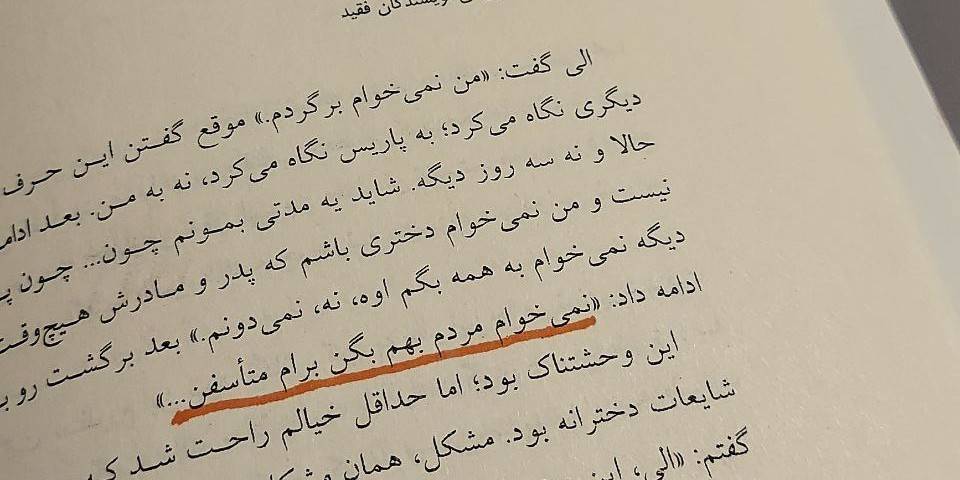 نویسندگان فقید
الی گفت: «من نمی‌خوام برگردم.» موقع گفتن این حرف
دیگری نگاه می‌کرد؛ به پاریس نگاه می‌کرد، نه به من. بعد
حالا و نه سه روز دیگه. شاید یه مدتی بمونم چون... چون
نیست و من نمی‌خوام دختری باشم که پدر و مادرش هیچ‌وقت
دیگه نمی‌خوام به همه بگم اوه، نه، نمی‌دونم.» بعد برگشت رو
ادامه داد: «نمی‌خوام مردم بهم بگن برام متأسفن...»
این وحشتناک بود؛ اما حداقل خیالم راحت شد که
شایعات دخترانه بود. مشکل، همان
گفتم: «الی، این